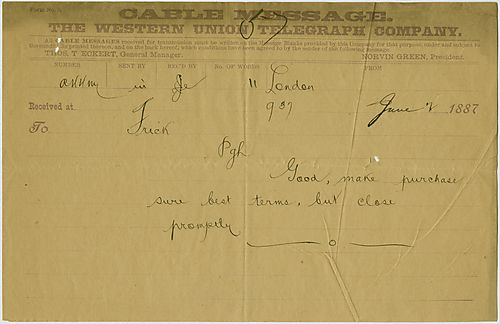 Form No.
CABLE MESSAGE.
THE WESTERN UNION TELEGRAPH COMPANY.
ALL CABLE MESSAGES received for transmission must be written on the Message Blanks provided by this Company for that purpose, under and subject to
the conditions printed thereon, and on the back hereof, which conditions have been agreed to by the sender of the following message.
THOS. T. ECKERT, General Manager.
NORVIN GREEN, President.
NUMBER SENT BY REC'D BY No. OF WORDS FROM
11 London
Received at 937 June 2 1887
To Frick
Pgh
Good, make purchase
sure best terms, but close
promptly